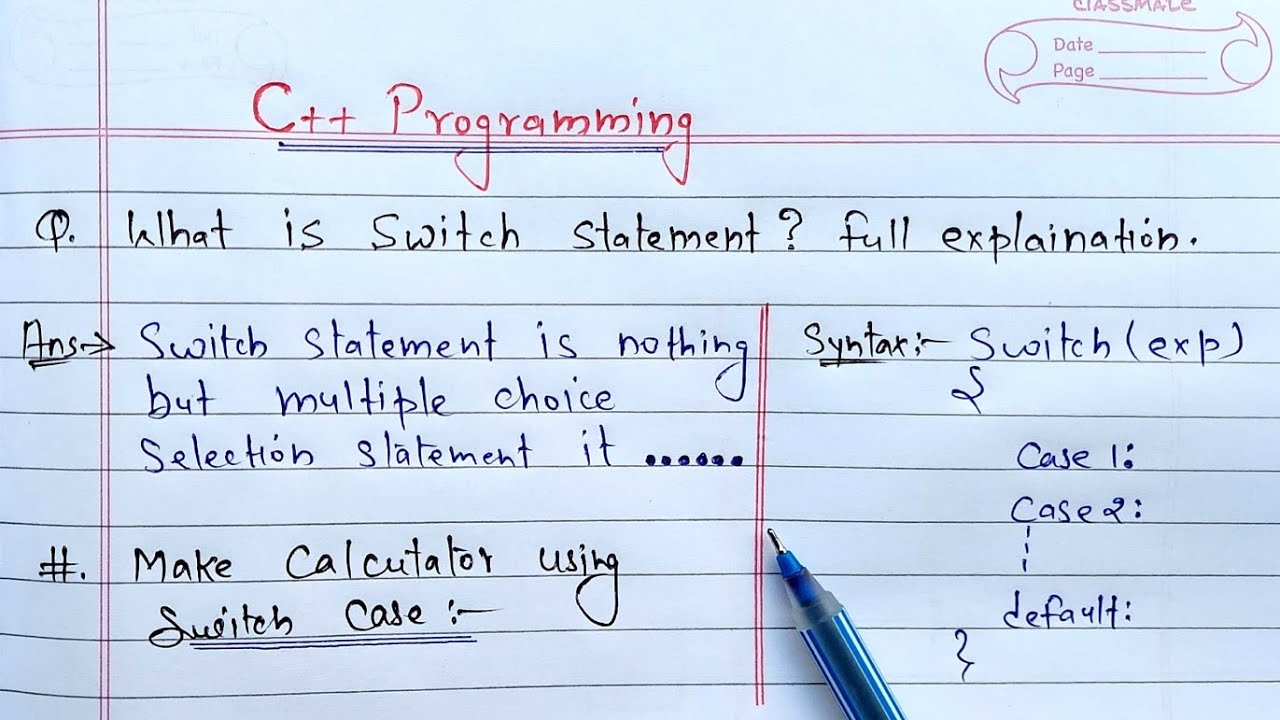 classmate
Date
Page
C++ Programming
Q. What is Switch statement? full explaination.
Ans→ Switch statement is nothing
but multiple choice
Selection statement it ......
#. Make Calcutator using
Switch Case:-
Syntax:- Switch (exp)
{
Case 1:
Case 2:
default:
}